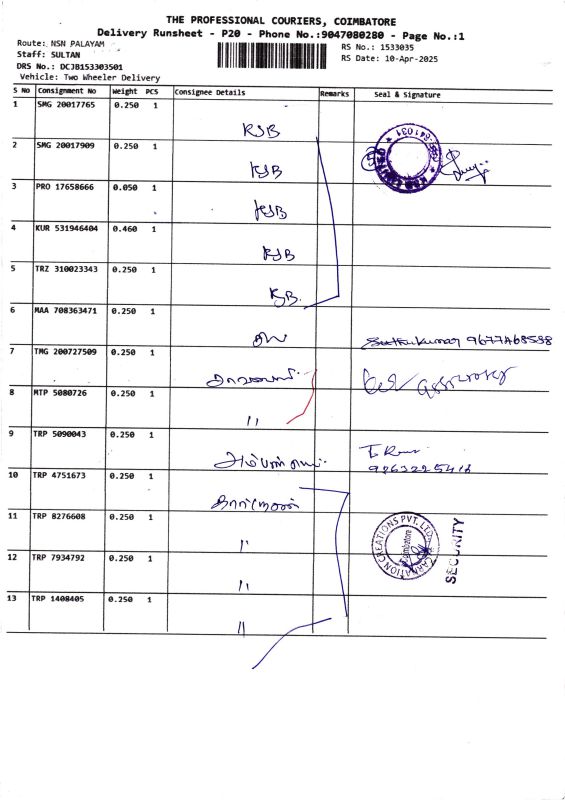 THE PROFESSIONAL COURIERS, COIMBATORE
Delivery Runsheet - P20 - Phone No.:9047080280 - Page No.:1
Route: NSN PALAYAM
Staff: SULTAN
DRS No.: DCJB153303501
Vehicle: Two Wheeler Delivery
RS No.: 1533035
RS Date: 10-Apr-2025
S No Consignment No Weight PCS Consignee Details Remarks Seal & Signature
1 SMG 20017765 0.250 1 KJB
2 SMG 20017909 0.250 1 KJB
3 PRO 17658666 0.050 1 KJB
4 KUR 531946404 0.460 1 KJB
5 TRZ 310023343 0.250 1 KJB
6 MAA 708363471 0.250 1
7 TMG 200727509 0.250 1
8 MTP 5080726 0.250 1 "
9 TRP 5090043 0.250 1
10 TRP 4751673 0.250 1
11 TRP 8276608 0.250 1 "
12 TRP 7934792 0.250 1 "
13 TRP 1408405 0.250 1 "
SECURITY